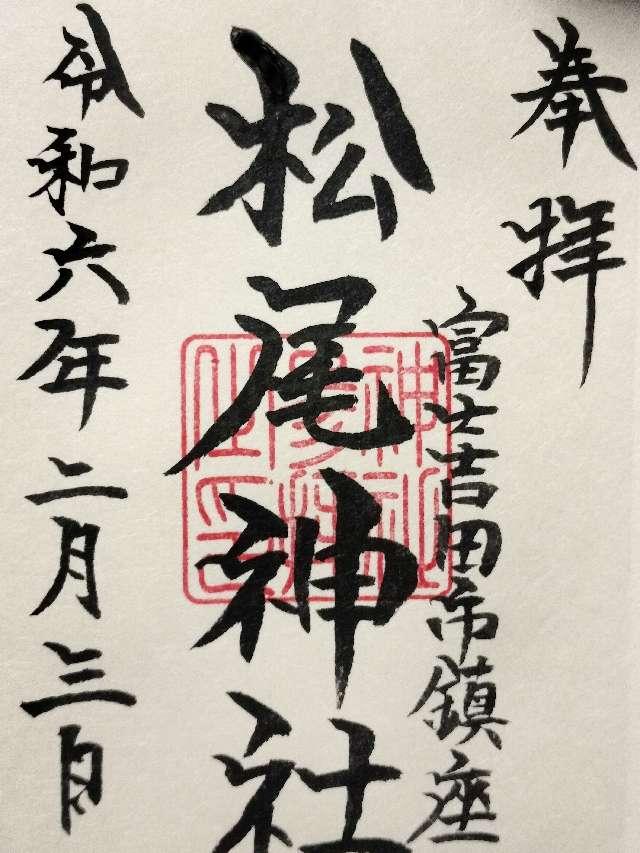 奉拝
富士吉田市鎮座
松尾神社
令和六年二月三日